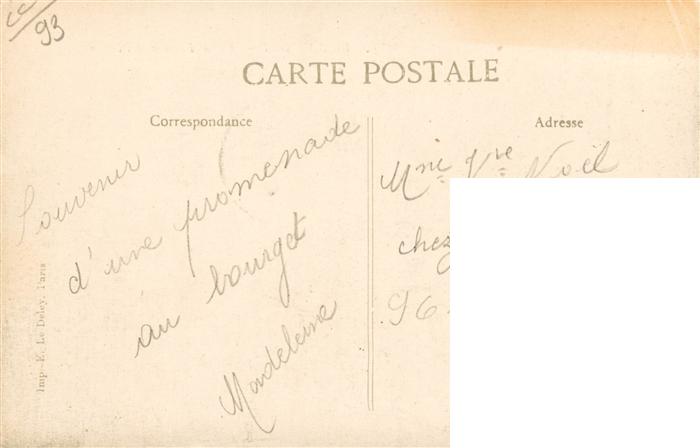 93
CARTE POSTALE
Correspondance
Adresse
Souvenir
d'une promenade
au bourget
Madeleine
Mme Vve Noël
chez
96
Imp. E. Le Deley, Paris